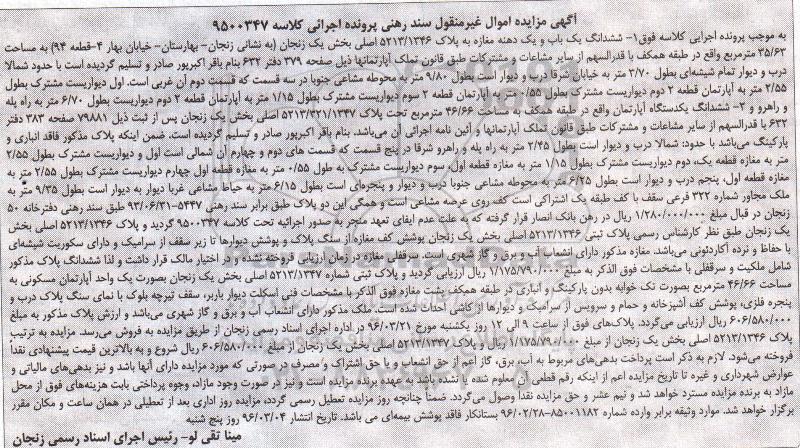 آگهی مزایده اموال غیرمنقول سند رهنی پرونده اجرائی کلاسه ۹۵۰۰۳۴۷
به موجب پرونده اجرایی کلاسه فوق ۱- ششدانگ یک باب و یک دهنه مغازه به پلاک ۵۲۱۳/۱۳۴۶ اصلی بخش یک زنجان (به نشانی زنجان- بهارستان- خیابان بهار ۴-قطعه ۹۴) به مساحت
۳۵/۶۳ مترمربع واقع در طبقه همکف با قدرالسهم از سایر مشاعات و مشترکات طبق قانون تملک آپارتمانها ذیل صفحه ۳۷۹ دفتر ۶۳۲ بنام باقر اکبرپور صادر و تسلیم گردیده است با حدود شمالا
درب و دیوار تمام شیشه‌ای بطول ۳/۷۰ متر به خیابان شرقا درب و دیوار است بطول ۹/۸۰ متر به محوطه مشاعی جنوبا در سه قسمت که قسمت دوم آن غربی است. اول دیواریست مشترک بطول
۲/۵۵ متر به آپارتمان قطعه ۲ دوم دیواریست مشترک بطول ۰/۵۵ متر به آپارتمان قطعه ۲ سوم دیواریست مشترک بطول ۱/۱۵ متر به آپارتمان قطعه ۲ دوم دیواریست بطول ۶/۷۰ متر به راه پله
و راهرو و ۲- ششدانگ یکدستگاه آپارتمان واقع در طبقه همکف به مساحت ۴۶/۶۶ مترمربع تحت پلاک ۵۲۱۳/۳۲۱/۱۳۴۷ اصلی بخش یک زنجان پس از ثبت ذیل ۷۹۸۸۱ صفحه ۳۸۳ دفتر
۶۳۲ با قدرالسهم از سایر مشاعات و مشترکات طبق قانون تملک آپارتمانها و آئین نامه اجرائی آن می‌باشد. بنام باقر اکبرپور صادر و تسلیم گردیده است. ضمن اینکه پلاک مذکور فاقد انباری و
پارکینگ می‌باشد با حدود: شمالا درب و دیوار است بطول ۲/۴۵ متر به راه پله و راهرو شرقا در پنج قسمت که قسمت های دوم و چهارم آن شمالی است اول و دیواریست مشترک بطول ۲/۵۵
متر به مغازه قطعه یک، دوم دیواریست مشترک بطول ۱/۱۵ متر به مغازه قطعه اول، سوم دیواریست مشترک به طول ۰/۵۵ متر به مغازه قطعه اول چهارم دیواریست مشترک بطول ۲/۵۵ متر به
مغازه قطعه اول، پنجم درب و دیوار است بطول ۶/۲۵ متر به محوطه مشاعی جنوبا درب و دیوار و پنجره‌ای است بطول ۶/۱۵ متر به حیاط مشاعی غربا دیوار به دیوار است بطول ۹/۳۵ متر به
ملک مجاور شماره ۳۲۲ فرعی سقف با کف طبقه یک اشتراکی است کف روی عرصه مشاعی است و همگی این دو پلاک طبق برابر سند رهنی ۵۴۴۷-۹۳/۰۶/۳۱ طبق سند رهنی دفترخانه ۵۰
زنجان در قبال مبلغ ۱/۲۸۰/۰۰۰/۰۰۰ ریال در رهن بانک انصار قرار گرفته که به علت عدم ایفای تعهد منجر به صدور اجرائیه تحت کلاسه ۹۵۰۰۳۴۷ گردید و پلاک ۵۲۱۳/۱۳۴۶ اصلی بخش
یک زنجان طبق نظر کارشناس رسمی پلاک ثبتی ۵۲۱۳/۱۳۴۶ اصلی بخش یک زنجان پوشش کف مغازه از سنگ پلاک و پوشش دیوارها تا زیر سقف از سرامیک و دارای سکوریت شیشه‌ای
با حفاظ و نرده آکاردئونی می‌باشد. مغازه مذکور دارای انشعاب آب و برق و گاز شهری است. سرقفلی مغازه در زمان ارزیابی فروخته نشده و در اختیار مالک قرار داشت و لذا ششدانگ پلاک مذکور
شامل ملکیت و سرقفلی با مشخصات فوق الذکر به مبلغ ۱/۱۷۵/۷۹۰/۰۰۰ ریال ارزیابی گردید و پلاک ثبتی شماره ۵۲۱۳/۱۳۴۷ اصلی بخش یک زنجان بصورت یک واحد آپارتمان مسکونی به
مساحت ۴۶/۶۶ مترمربع بصورت تک خوابه بدون پارکینگ و انباری در طبقه همکف پشت مغازه فوق الذکر با مشخصات فنی اسکلت دیوار باربر، سقف تیرچه بلوک با نمای سنگ پلاک درب و
پنجره فلزی، پوشش کف آشپزخانه و حمام و سرویس از سرامیک و دیوارها از کاشی احداث شده است. ملک مذکور دارای انشعاب آب و برق و گاز شهری می‌باشد و ارزش پلاک مذکور به مبلغ
۶۰۶/۵۸۰/۰۰۰ ریال ارزیابی می‌گردد. پلاک‌های فوق از ساعت ۹ الی ۱۲ روز یکشنبه مورخ ۹۶/۰۳/۲۱ در اداره اجرای اسناد رسمی زنجان از طریق مزایده به فروش می‌رسد. مزایده به ترتیب
پلاک ۵۲۱۳/۱۳۴۶ اصلی بخش یک زنجان از مبلغ ۱/۱۷۵/۷۹۰/۰۰۰ ریال و پلاک ۵۲۱۳/۱۳۴۷ اصلی بخش یک زنجان از مبلغ ۶۰۶/۵۸۰/۰۰۰ ریال شروع و به بالاترین قیمت پیشنهادی نقداً
فروخته می‌شود. لازم به ذکر است پرداخت بدهی‌های مربوط به آب، برق، گاز اعم از حق انشعاب و یا حق اشتراک و مصرف در صورتی که مورد مزایده دارای آنها باشد و نیز بدهی‌های مالیاتی و
عوارض شهرداری و غیره تا تاریخ مزایده اعم از اینکه رقم قطعی آن معلوم شده یا نشده باشد به عهده برنده مزایده است و نیز در صورت وجود مازاد، وجوه پرداختی بابت هزینه‌های فوق از محل
مازاد به برنده مزایده مسترد خواهد شد و نیم عشر و حق مزایده نقداً وصول می‌گردد. ضمناً چنانچه روز مزایده تعطیل رسمی گردد، مزایده روز اداری بعد از تعطیلی در همان ساعت و مکان مقرر
برگزار خواهد شد. موارد وثیقه برابر وارده شماره ۸۵۰۰۱۱۸۲-۹۶/۰۲/۲۸ بستانکار فاقد پوشش بیمه‌ای می باشد. تاریخ انتشار ۹۶/۰۳/۰۴ روز پنج شنبه
مینا تقی لو- رئیس اجرای اسناد رسمی زنجان